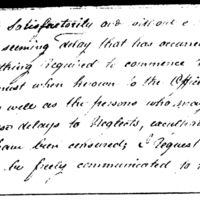 satisfactorily and without
seeming delay that has occurred
thing required to commence
must when known to the Office
well as the persons who may
delays to Neglects, exculp
ham been censured; I Request
be freely communicated to